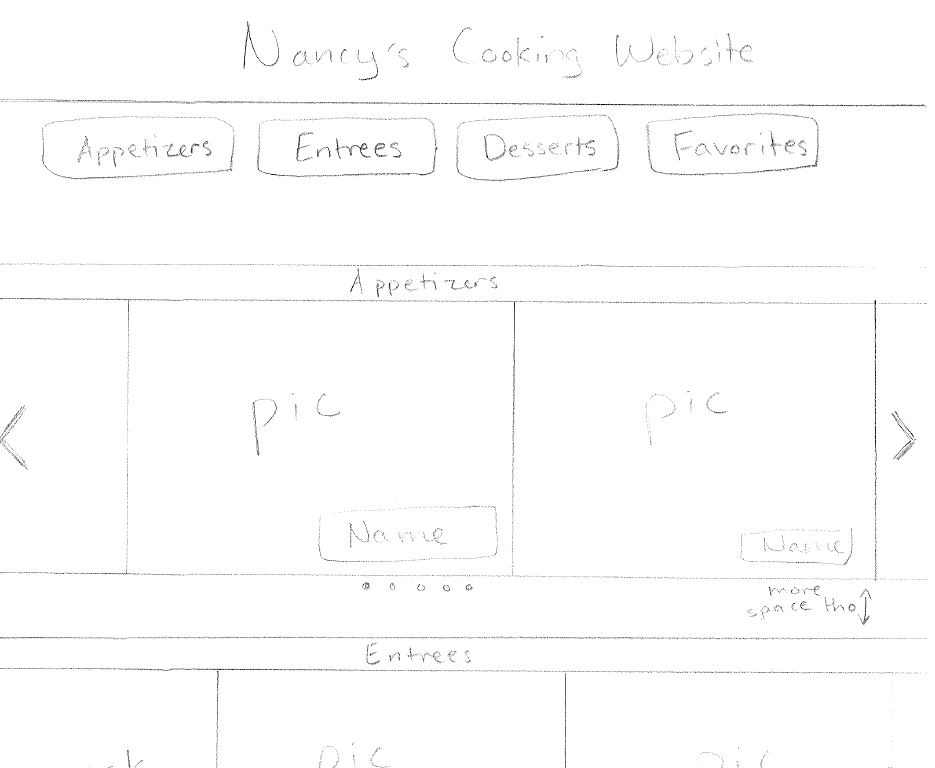 Nancy's Cooking Website
Appetizers Entrees Desserts Favorites
Appetizers
pic pic
Name Name
more
space tho
Entrees
pic pic